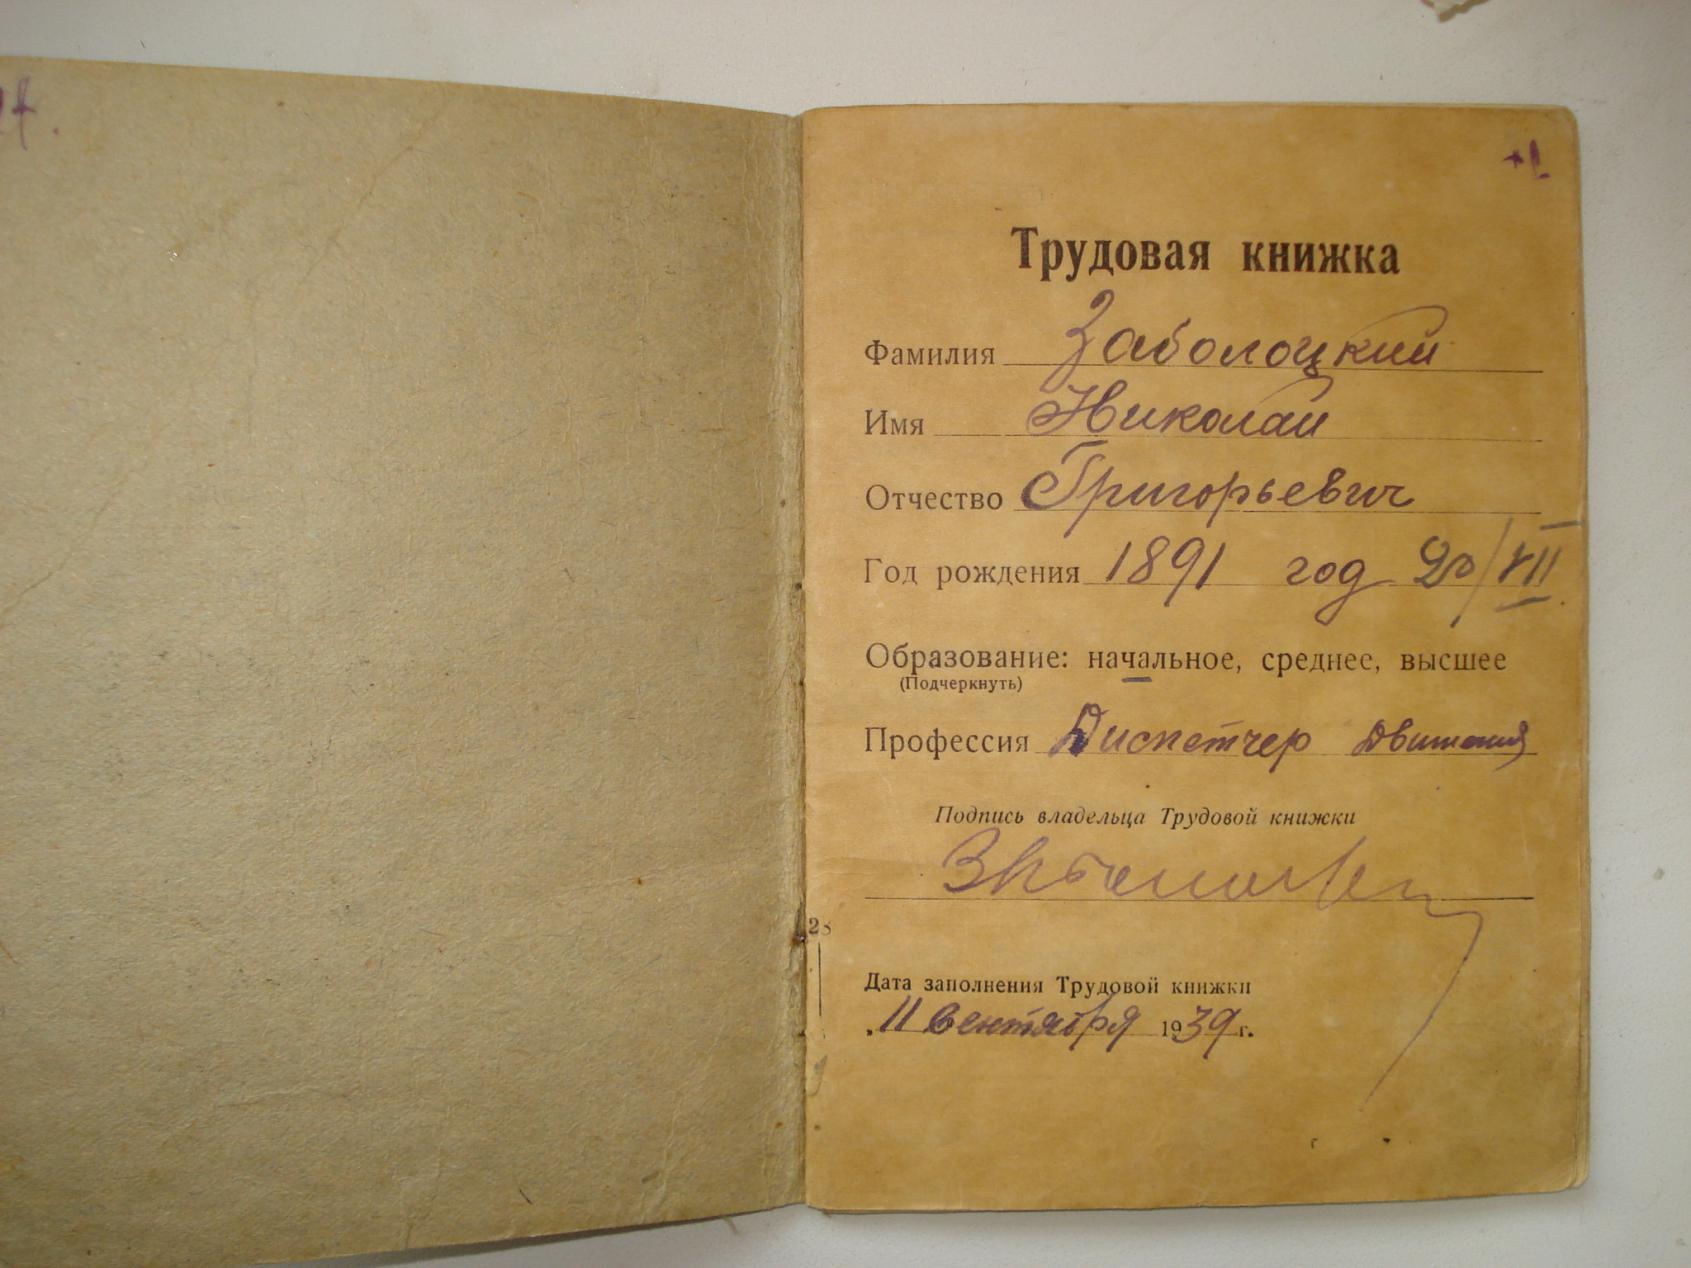 +1
Трудовая книжка
Фамилия Заболоцкий
Имя Николай
Отчество Григорьевич
Год рождения 1891 год 20/VII
Образование: начальное, среднее, высшее
(Подчеркнуть)
Профессия Диспетчер движения
Подпись владельца Трудовой книжки
Дата заполнения Трудовой книжки
„11 сентября 1939 г.